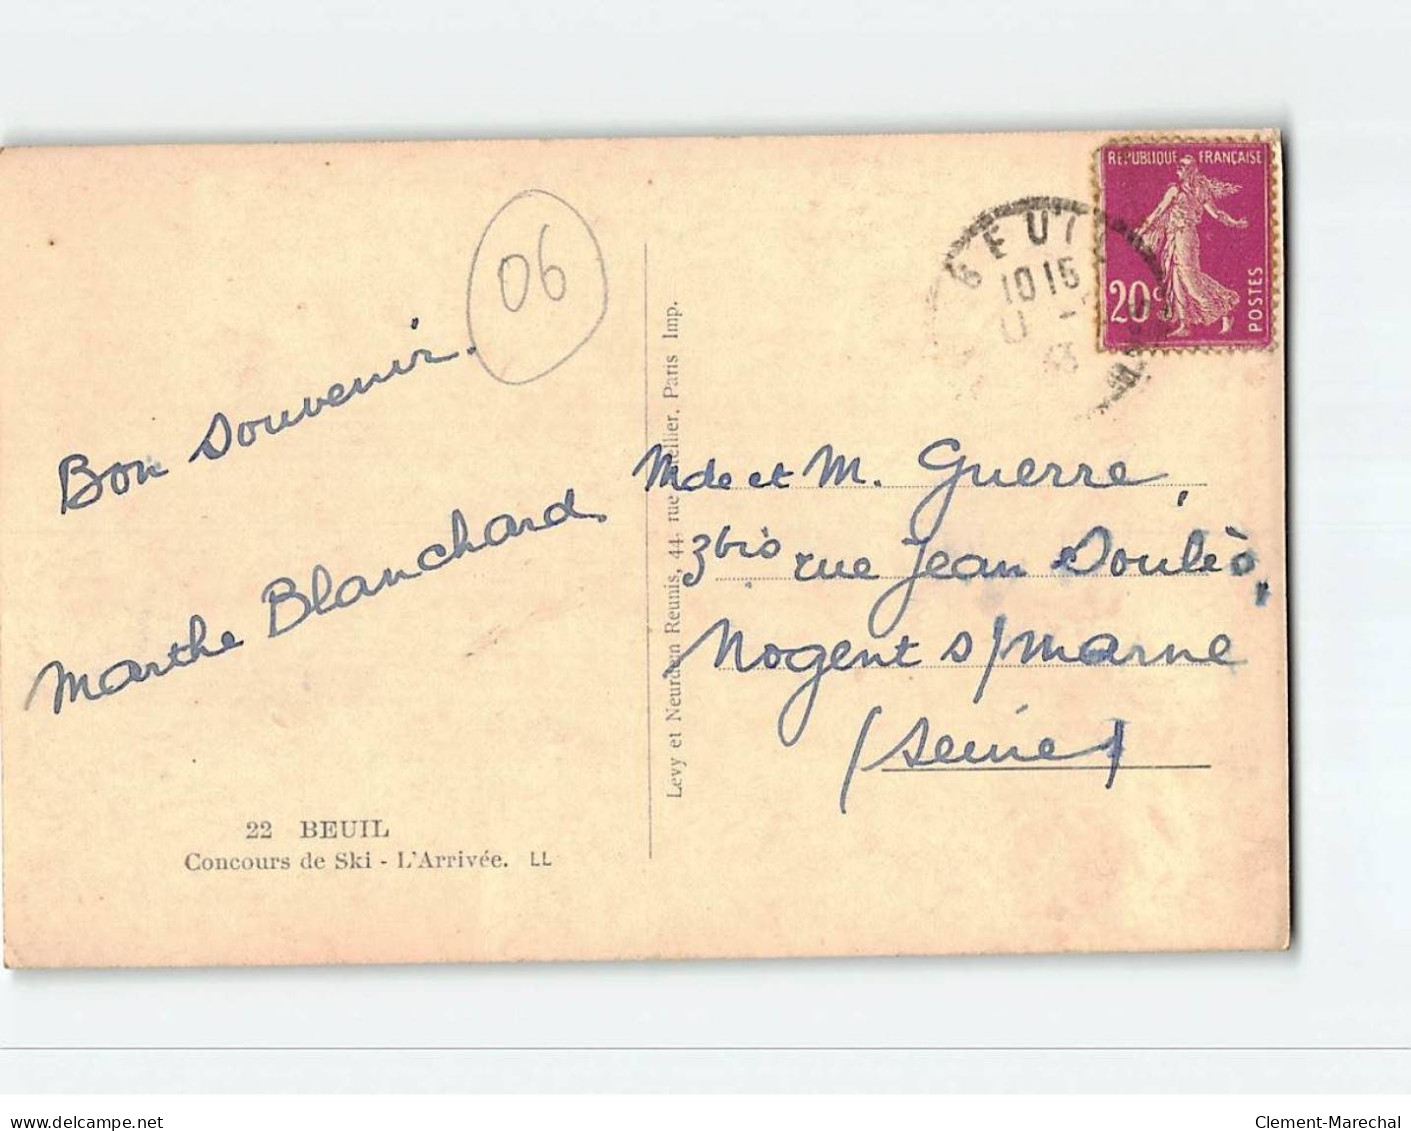 06
Bon Souvenir.
Marthe Blanchard
22 BEUIL
Concours de Ski - L'Arrivée. LL
Levy et Neurdein Reunis, 44, rue Letellier, Paris Imp.
RÉPUBLIQUE FRANÇAISE
20c
POSTES
BEUIL
10 15
Mde et M. Guerre,
3bis rue Jean Soulès,
Nogent s/Marne
(Seine)
www.delcampe.net
Clement-Marechal